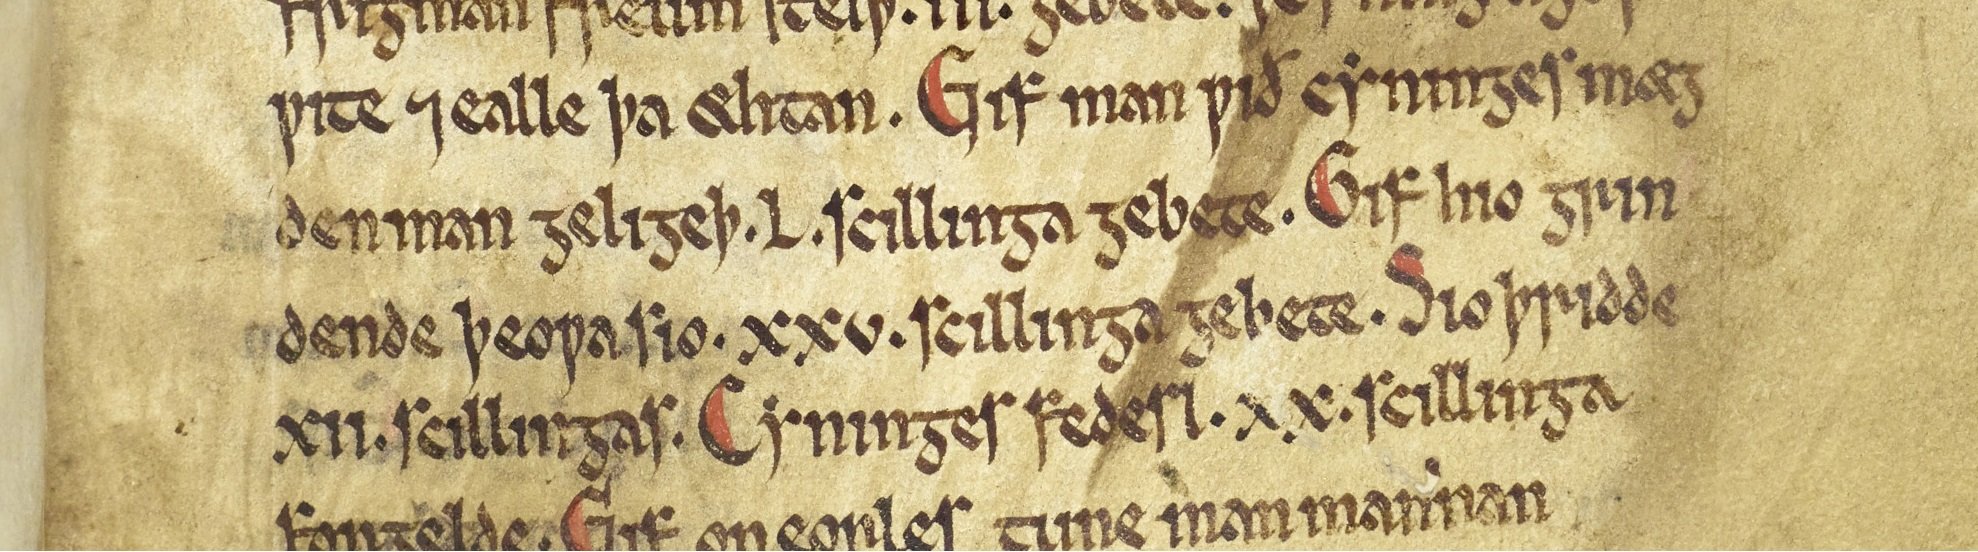 frigman freum stelþ. III. gebete.
ƿite ⁊ ealle þa æhtan. Gif man ƿið cyninges mæg
denman geligeþ. L. scillinga gebete. Gif hio grin
dende þeoƿa sio. XXV. scillinga gebete. Sio þridde
XII. scillingas. Cyninges fedesl. XX. scillinga
forgelde. Gif on eorles tune man mannan